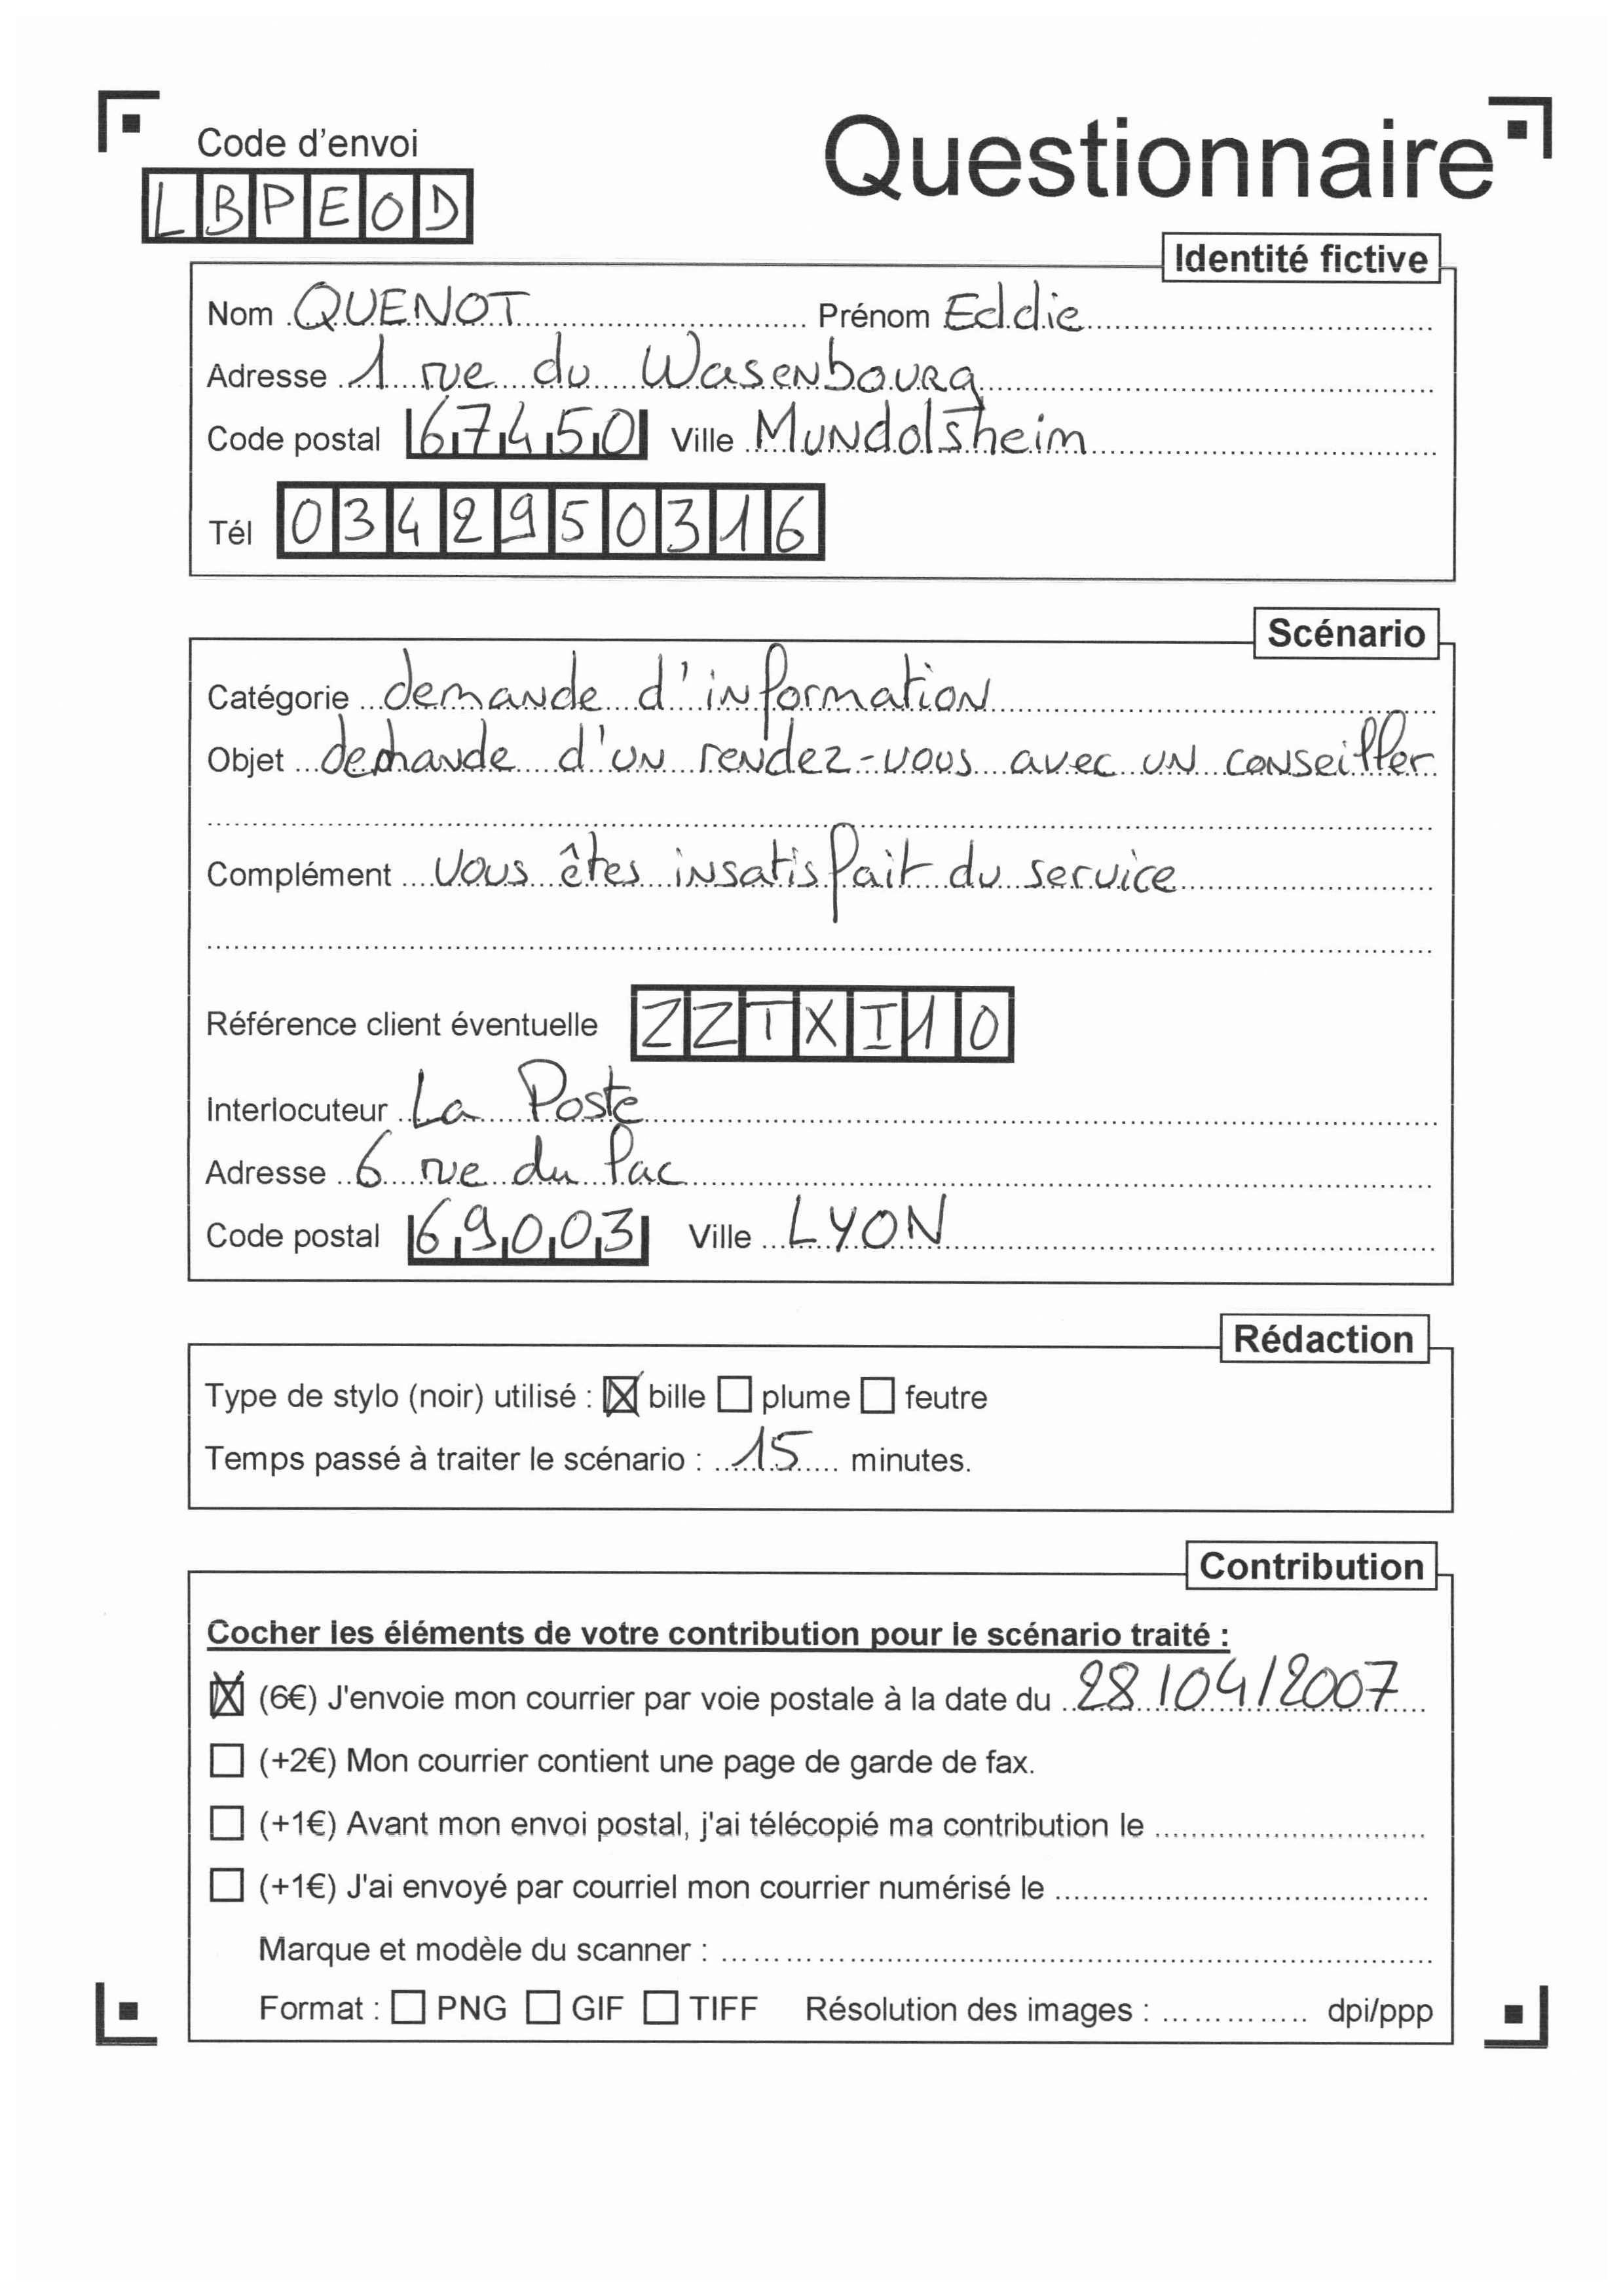 Code d'envoi
Questionnaire
LBPEOD
Identité fictive
Nom QUENOT Prénom Eddie
Adresse 1 rue du Wasenbourg
Code postal 67450 Ville Mundolsheim
Tél 0342950316
Scénario
Catégorie demande d'information
Objet demande d'un rendez-vous avec un conseiller
Complément Vous êtes insatisfait du service
Référence client éventuelle ZZTXI10
Interlocuteur La Poste
Adresse 6 rue du Lac
Code postal 69003 Ville LYON
Rédaction
Type de stylo (noir) utilisé : ☒ bille ☐ plume ☐ feutre
Temps passé à traiter le scénario : 15 minutes.
Contribution
Cocher les éléments de votre contribution pour le scénario traité :
☒ (6€) J'envoie mon courrier par voie postale à la date du 28/04/2007
☐ (+2€) Mon courrier contient une page de garde de fax.
☐ (+1€) Avant mon envoi postal, j'ai télécopié ma contribution le
☐ (+1€) J'ai envoyé par courriel mon courrier numérisé le
Marque et modèle du scanner :
Format : ☐ PNG ☐ GIF ☐ TIFF Résolution des images : dpi/ppp